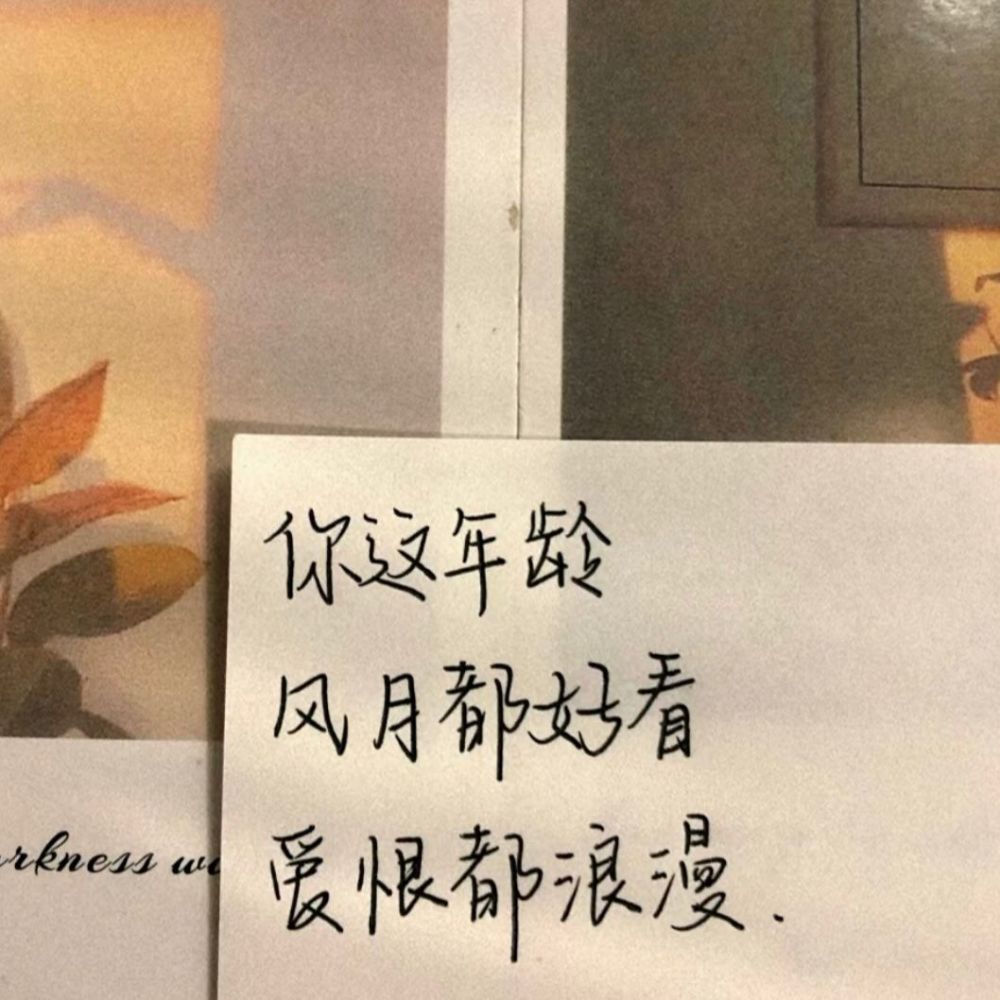 你这年龄
风月都好看
爱恨都浪漫.
rkness